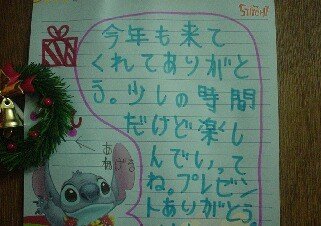 今年も来て
くれてありがと
う。少しの時間
だけど楽し
んでいって
ね。プレゼン
トありがとう。
あ
あげる